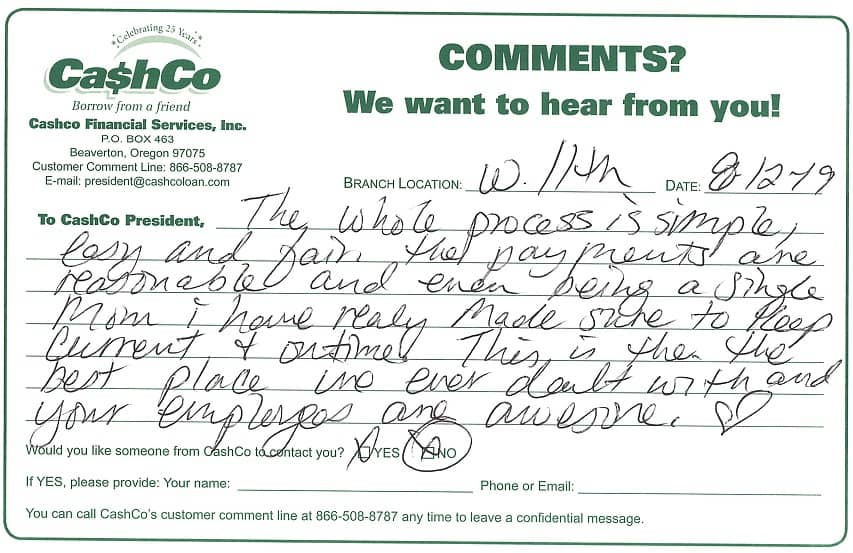 Celebrating 25 Years
Ca$hCo
Borrow from a friend
Cashco Financial Services, Inc.
P.O. BOX 463
Beaverton, Oregon 97075
Customer Comment Line: 866-508-8787
E-mail: president@cashcoloan.com
COMMENTS?
We want to hear from you!
BRANCH LOCATION: W. 11th DATE: 8-12-19
To CashCo President, The whole process is simple,
easy and fair. the payments are
reasonable and even being a single
Mom i have realy Made sure to keep
Current & ontime. This is then the
best place ive ever dealt with and
your employees are awesome. ♡
Would you like someone from CashCo to contact you? YES NO
If YES, please provide: Your name: Phone or Email:
You can call CashCo's customer comment line at 866-508-8787 any time to leave a confidential message.